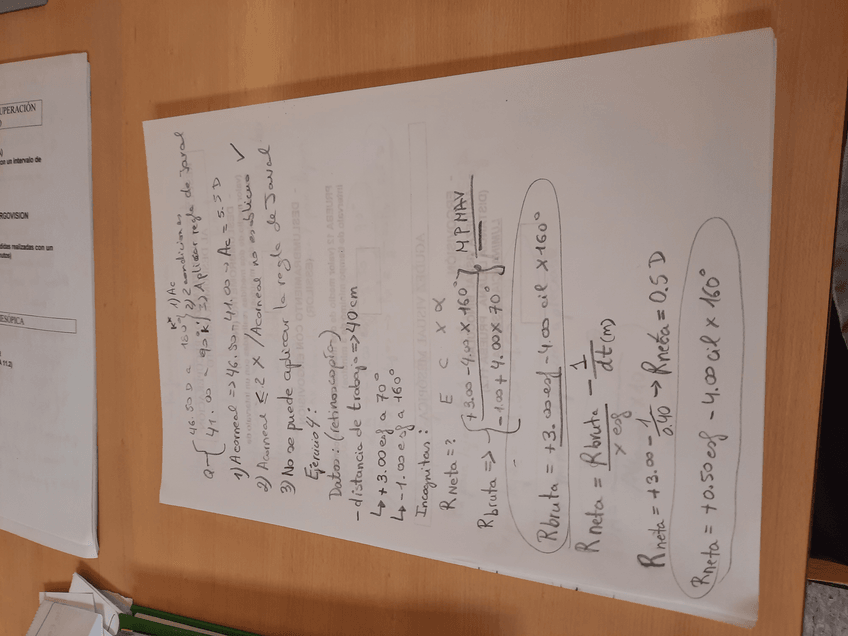 UPERACIÓN
on un intervalo de
RGOVISION
didas realizadas con un
nutos)
ESÓPICA
a - { 46.50 D a 180° K* 1) Ac
41.00 a 90° K } 2) 2 condiciones
3) Aplicar regla de Javal
1) Acorneal => 46.50 - 41.00 -> Ac = 5.5 D
2) Acorneal ≤ 2 X / Acorneal no es oblicuo ✓
3) No se puede aplicar la regla de Javal
Ejercicio 4:
Datos: (retinoscopía)
- distancia de trabajo => 40 cm
↳ +3.00 esf a 70°
↳ -1.00 esf a 160°
Incognitas:
RNeta = ? E C x α
Rbruta => { +3.00 - 4.00 x 160°
-1.00 + 4.00 x 70° } MPMAV
Rbruta = +3.00 esf - 4.00 cil x 160°
Rneta = Rbruta x esf - 1/dt(m)
Rneta = +3.00 - 1/0.40 -> Rneta = 0.5 D
Rneta = +0.50 esf - 4.00 cil x 160°